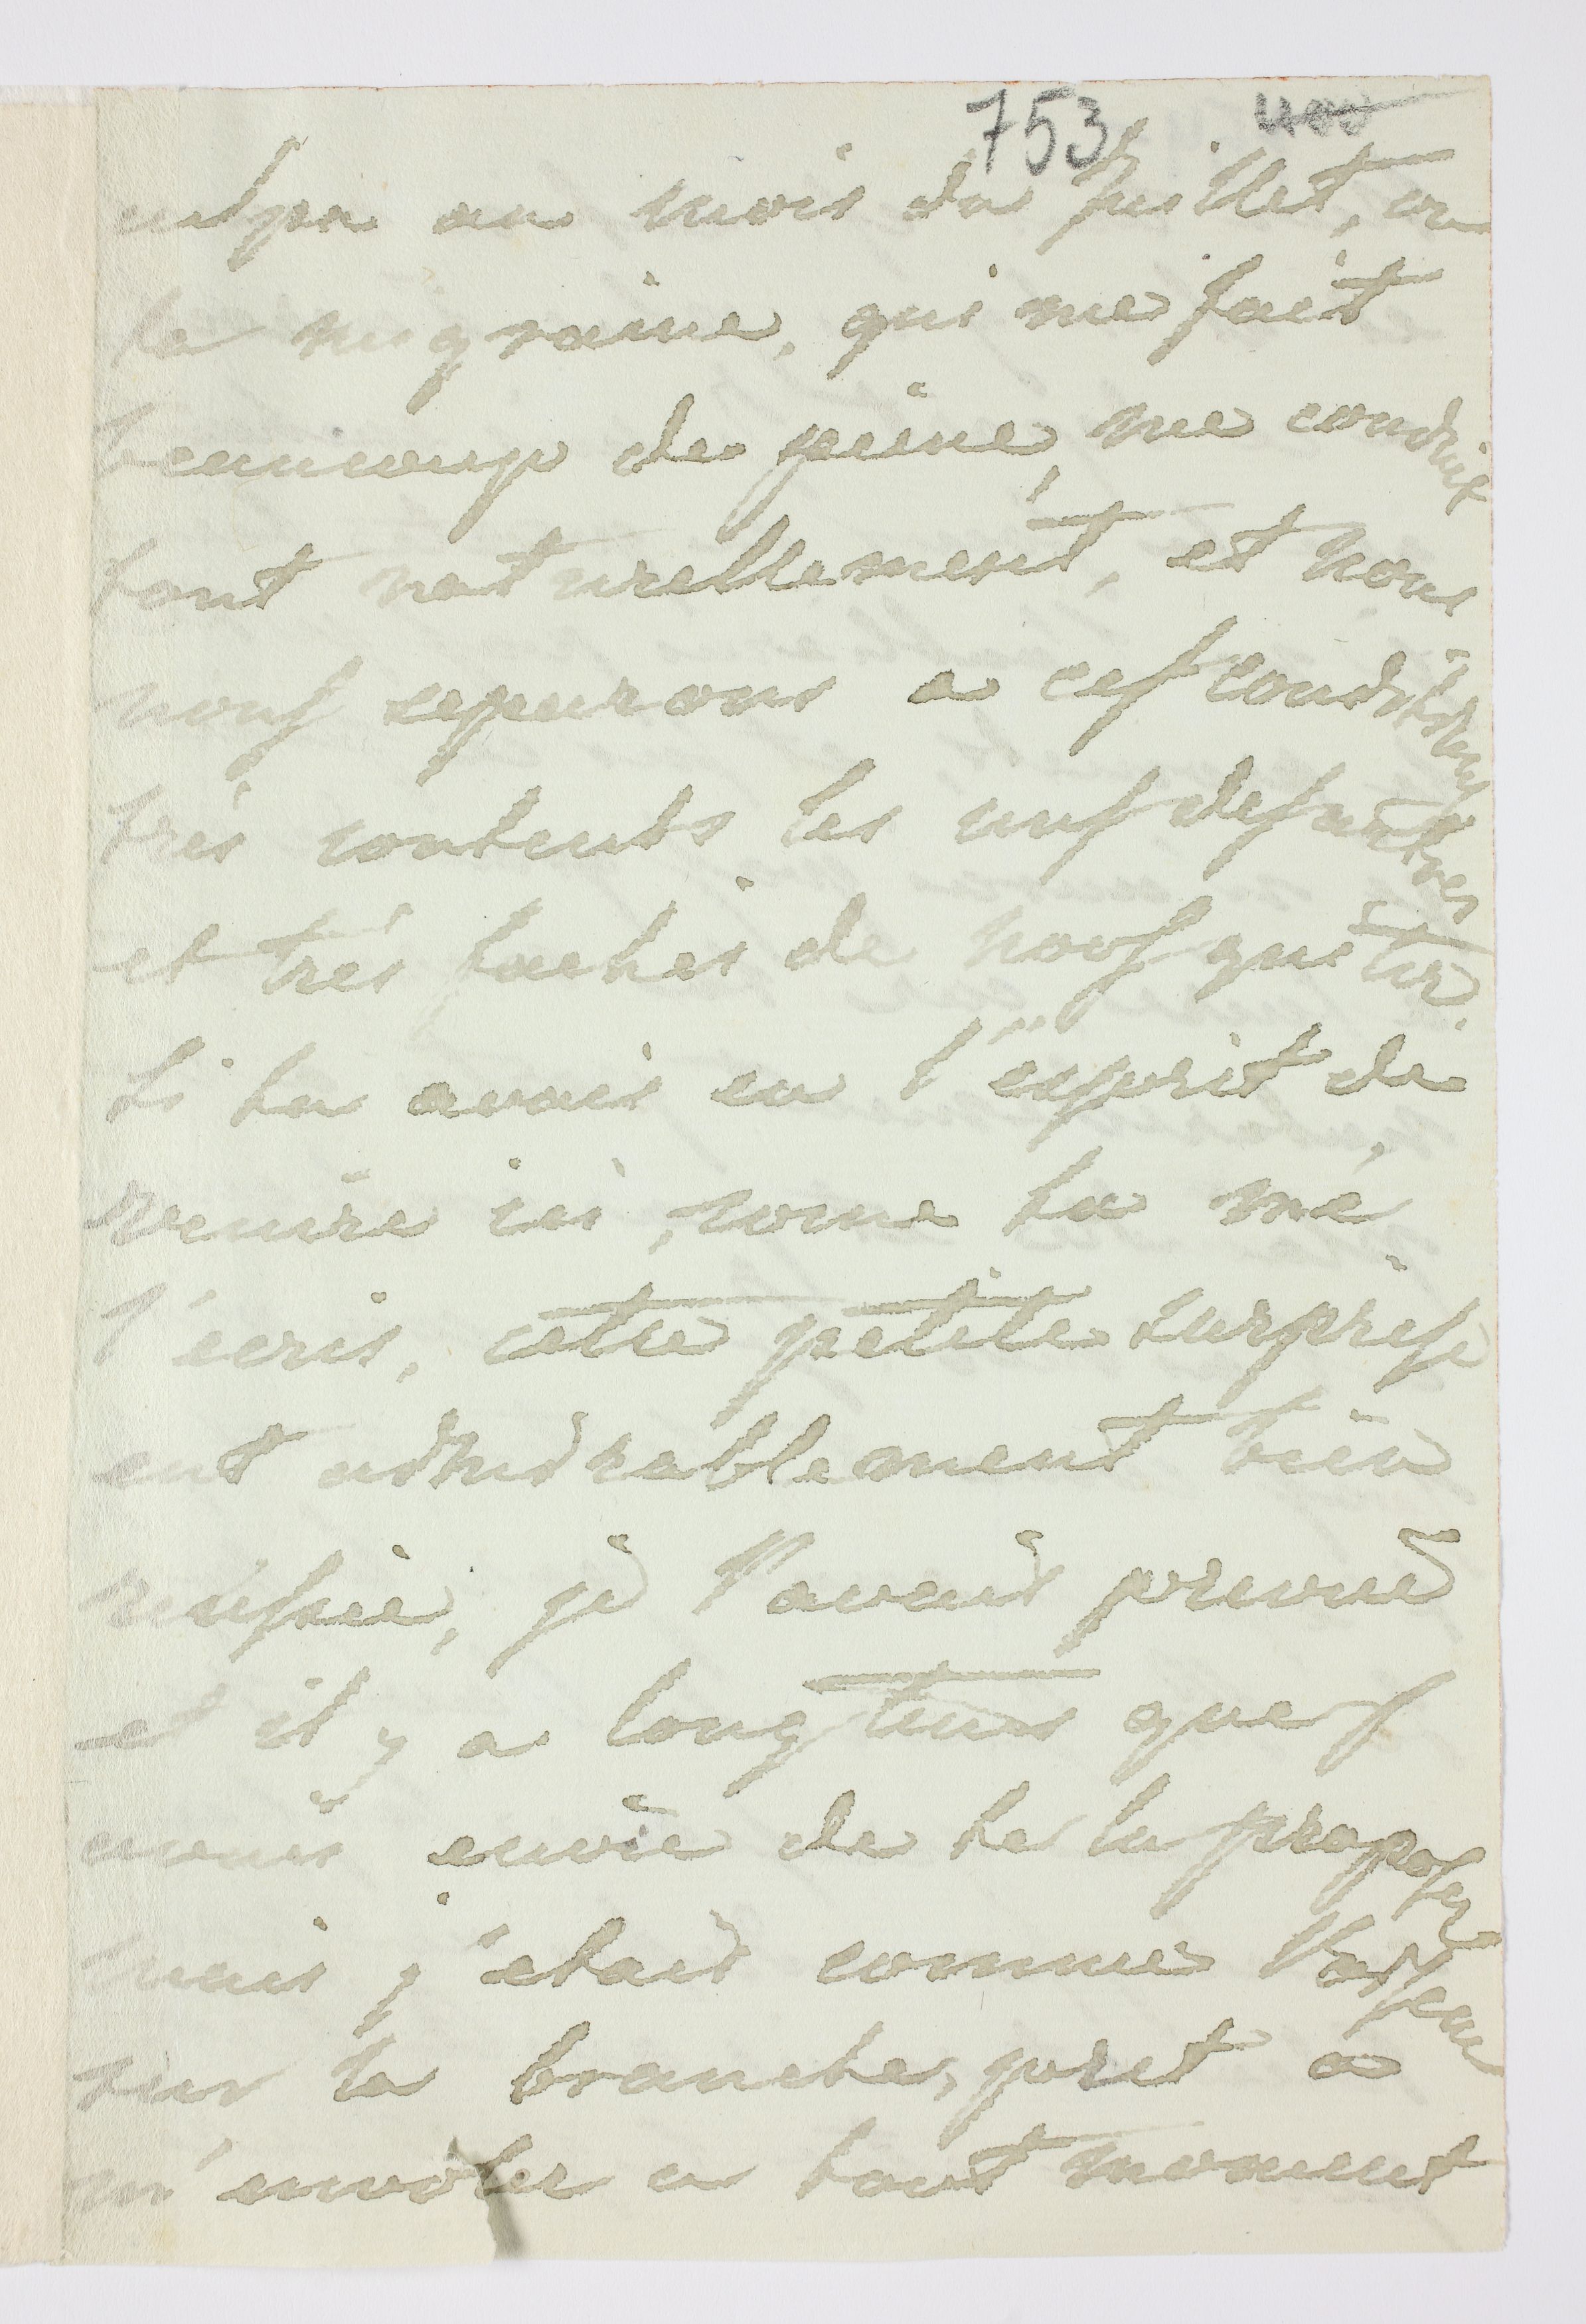 753 400
culpa au mois de Juillet, ou
la migraine, qui me fait
beaucoup de peine, me conduit
tout naturellement, et nous
nous separons a ces conditions
très contents les uns des autres
et très fachés de nous quitter.
Si tu avais eu l'esprit de
venire ici, come tu me
l'écris, cette petite surprise
eut admirablement bien
réussie, je l'avais prevue
et il y a longtems que j'
avais envie de te la proposer
mais j'étais comme l'oiseau
sur la branche, pret a
m'envoler a tout moment